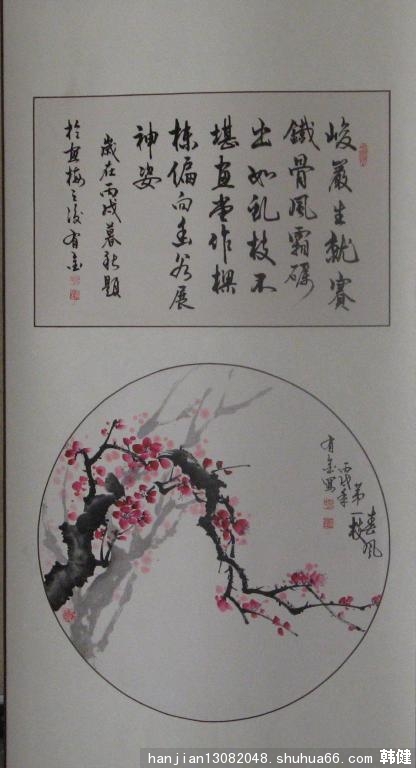 峻巖生就賽
鐵骨風霜礪
出如虬枝不
堪畫堂作樑
棟偏向幽谷展
神姿
歲在丙戌暮秋題
於畫梅之後有金
春風
第一枝
丙戌年
有金寫
hanjian13082048.shuhua66.com 韩健